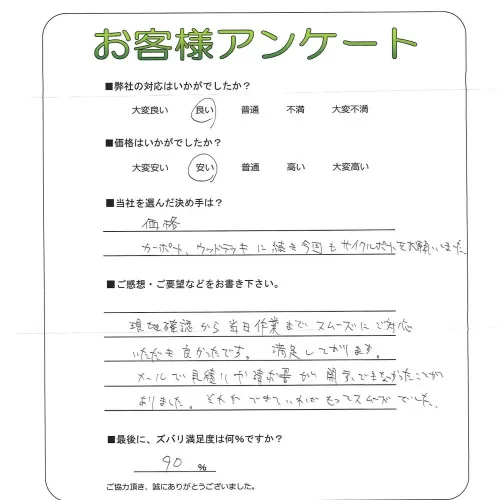 お客様アンケート
■弊社の対応はいかがでしたか？
大変良い 良い 普通 不満 大変不満
■価格はいかがでしたか？
大変安い 安い 普通 高い 大変高い
■当社を選んだ決め手は？
価格
カーポート、ウッドデッキに続き今回もサイクルポートをお願いしました
■ご感想・ご要望などをお書き下さい。
現地確認から当日作業までスムーズにご対応
いただき良かったです。満足しております。
メールで見積りか請求書が開示できなかったことが
ありました。それができていればもってスムーズでした。
■最後に、ズバリ満足度は何％ですか？
90 %
ご協力頂き、誠にありがとうございました。